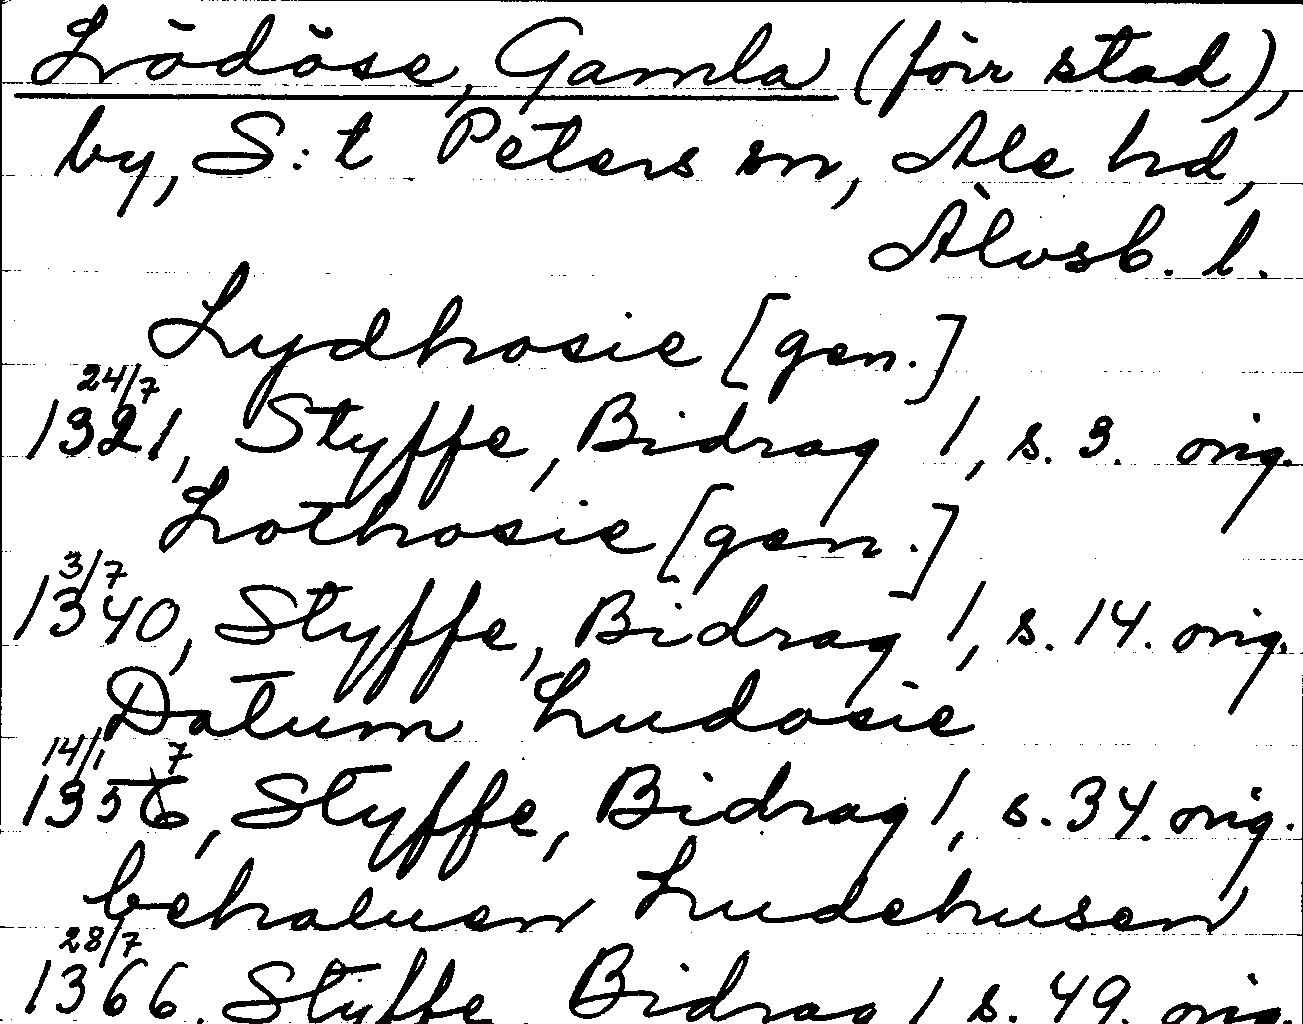 Lödöse, Gamla (förr stad),
by, S:t Peters sn, Ale hd,
Älvsb. l.
Lydhosie [gen.]
24/7
1321, Styffe, Bidrag 1, s. 3. orig.
Lothosie [gen.]
3/7
1340, Styffe, Bidrag 1, s. 14. orig.
Datum Ludosie
14/1 7
1356, Styffe, Bidrag 1, s. 34. orig.
behaluen Ludehusen
28/7
1366, Styffe, Bidrag 1 s. 49. orig.